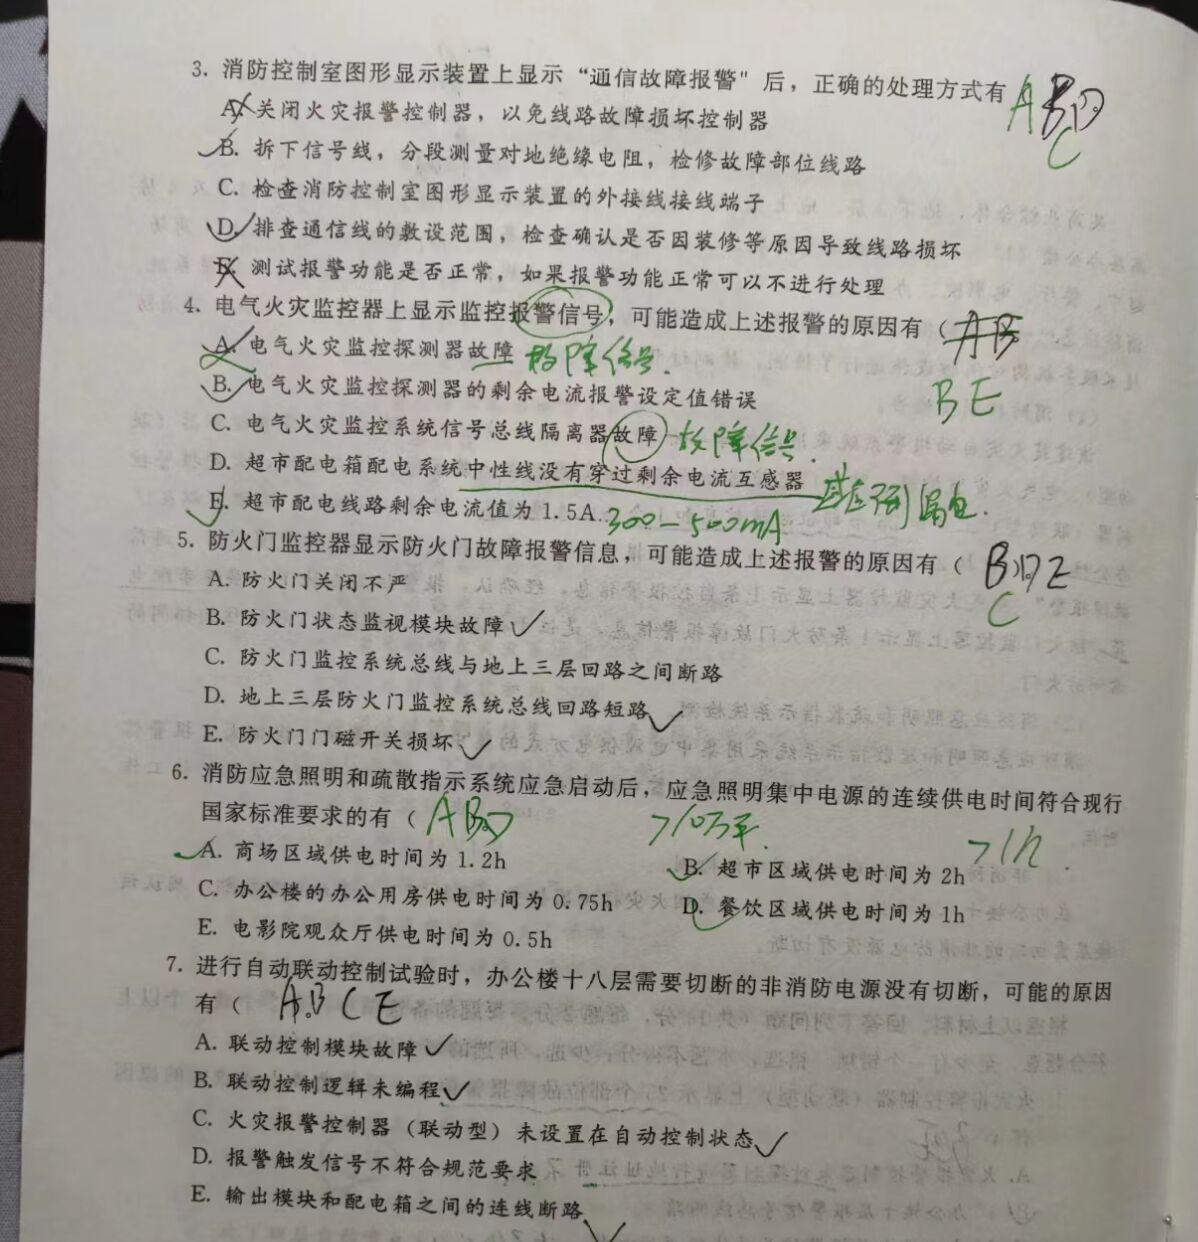 3. 消防控制室图形显示装置上显示“通信故障报警"后，正确的处理方式有 A B D
C
A. 关闭火灾报警控制器，以免线路故障损坏控制器
B. 拆下信号线，分段测量对地绝缘电阻，检修故障部位线路
C. 检查消防控制室图形显示装置的外接线接线端子
D. 排查通信线的敷设范围，检查确认是否因装修等原因导致线路损坏
E. 测试报警功能是否正常，如果报警功能正常可以不进行处理
4. 电气火灾监控器上显示监控报警信号，可能造成上述报警的原因有（ AB
A. 电气火灾监控探测器故障 故障信号.
B. 电气火灾监控探测器的剩余电流报警设定值错误 BE
C. 电气火灾监控系统信号总线隔离器故障 故障信号.
D. 超市配电箱配电系统中性线没有穿过剩余电流互感器
E. 超市配电线路剩余电流值为 1.5A. 300-500mA
5. 防火门监控器显示防火门故障报警信息，可能造成上述报警的原因有（ BDE
C
A. 防火门关闭不严
B. 防火门状态监视模块故障
C. 防火门监控系统总线与地上三层回路之间断路
D. 地上三层防火门监控系统总线回路短路
E. 防火门门磁开关损坏
6. 消防应急照明和疏散指示系统应急启动后，应急照明集中电源的连续供电时间符合现行
国家标准要求的有（ ABD >10万平. >1h
A. 商场区域供电时间为 1.2h B. 超市区域供电时间为 2h
C. 办公楼的办公用房供电时间为 0.75h D. 餐饮区域供电时间为 1h
E. 电影院观众厅供电时间为 0.5h
7. 进行自动联动控制试验时，办公楼十八层需要切断的非消防电源没有切断，可能的原因
有（ ABCE
A. 联动控制模块故障
B. 联动控制逻辑未编程
C. 火灾报警控制器（联动型）未设置在自动控制状态
D. 报警触发信号不符合规范要求
E. 输出模块和配电箱之间的连线断路